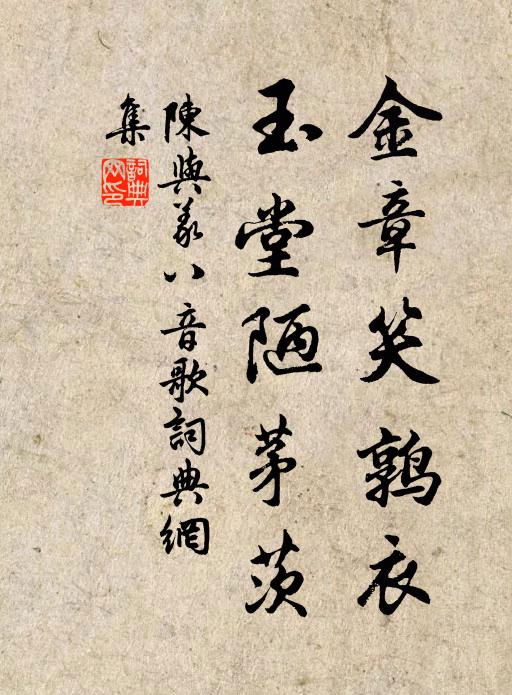 金章笑鶉衣
玉堂陋茅茨
陳與義八音歌詞典網
集
詞典網印